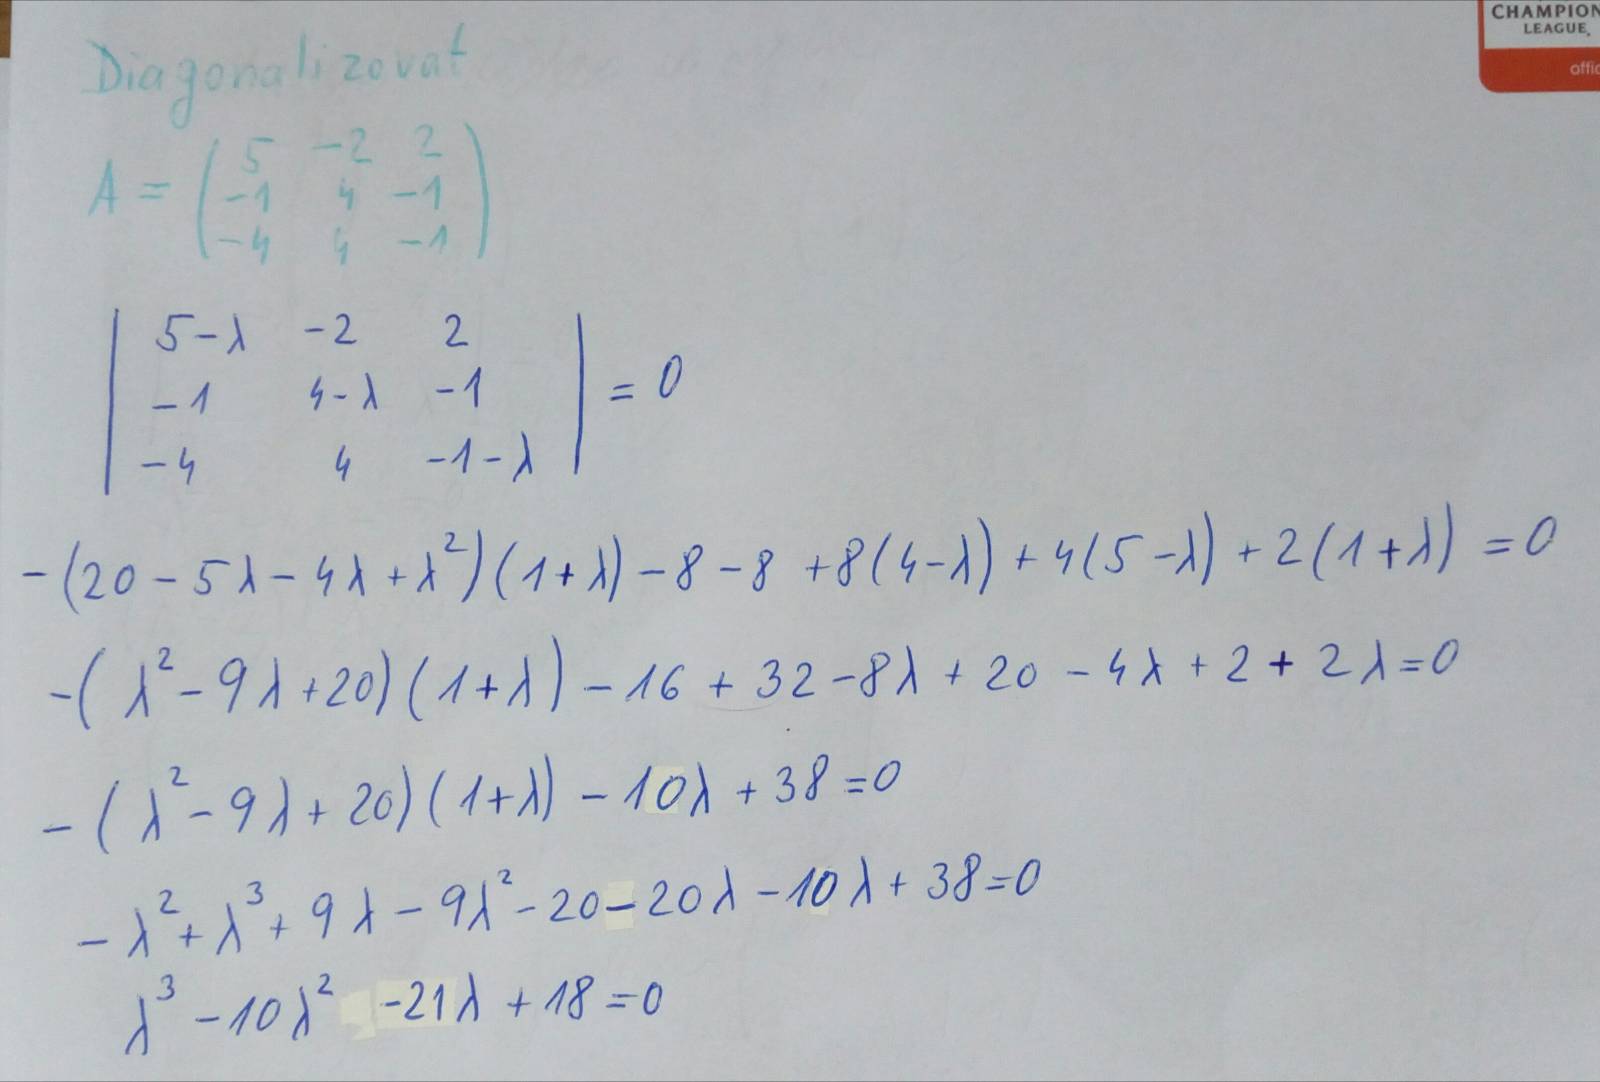 CHAMPION
LEAGUE
offic
Diagonalizovat
A = ( 5 -2 2
-1 4 -1
-4 4 -1 )
| 5-λ -2 2
-1 4-λ -1 | = 0
-4 4 -1-λ
-(20 - 5λ - 4λ + λ²)(1+λ) - 8 - 8 + 8(4-λ) + 4(5-λ) + 2(1+λ) = 0
-(λ² - 9λ + 20)(1+λ) - 16 + 32 - 8λ + 20 - 4λ + 2 + 2λ = 0
-(λ² - 9λ + 20)(1+λ) - 10λ + 38 = 0
-λ² + λ³ + 9λ - 9λ² - 20 - 20λ - 10λ + 38 = 0
λ³ - 10λ² - 21λ + 18 = 0